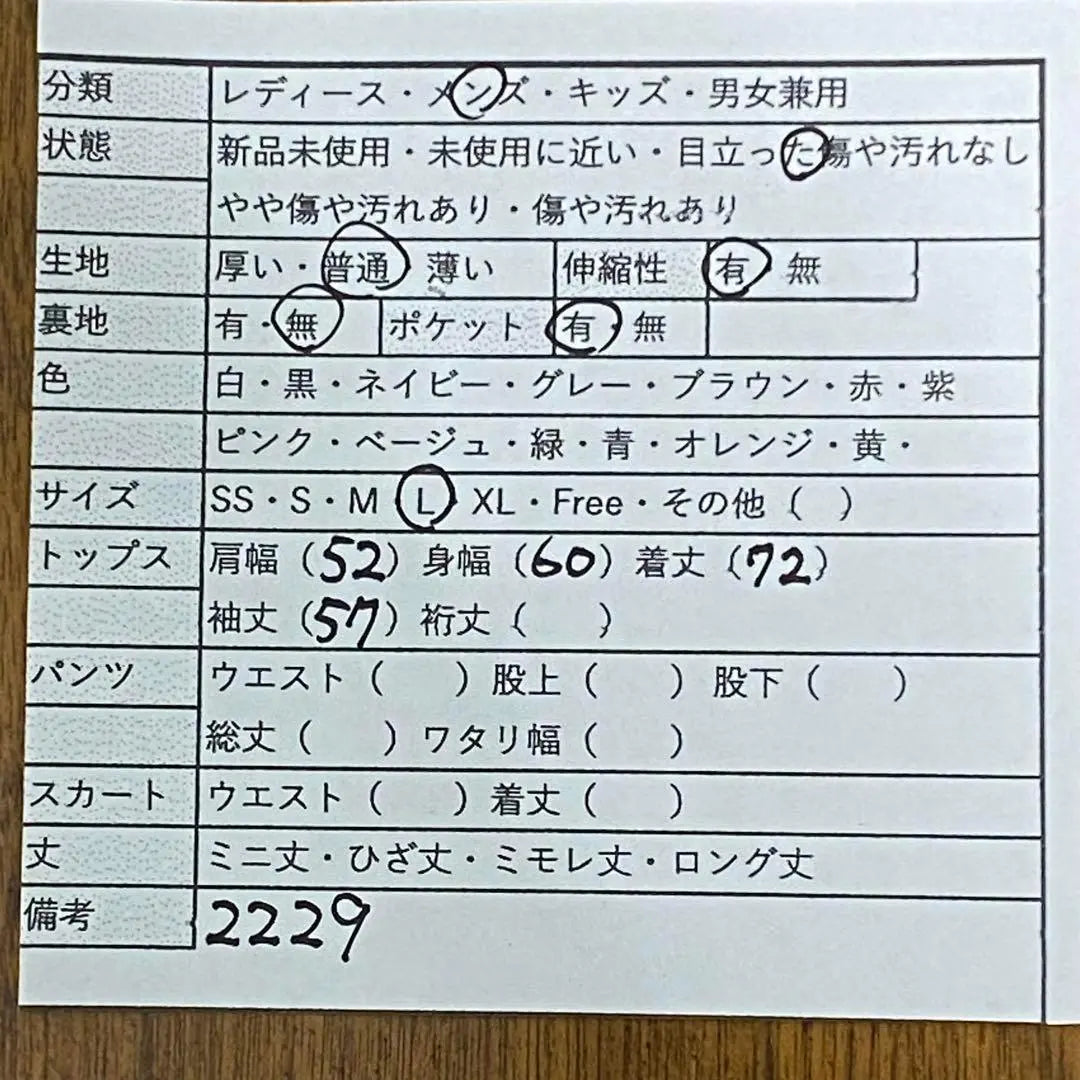 分類 レディース・メンズ・キッズ・男女兼用
状態 新品未使用・未使用に近い・目立った傷や汚れなし
やや傷や汚れあり・傷や汚れあり
生地 厚い・普通 薄い 伸縮性 有 無
裏地 有・無 ポケット 有・無
色 白・黒・ネイビー・グレー・ブラウン・赤・紫
ピンク・ベージュ・緑・青・オレンジ・黄・
サイズ SS・S・M L XL・Free・その他 ( )
トップス 肩幅 (52) 身幅 (60) 着丈 (72)
袖丈 (57) 裄丈 ( )
パンツ ウエスト ( ) 股上 ( ) 股下 ( )
総丈 ( ) ワタリ幅 ( )
スカート ウエスト ( ) 着丈 ( )
丈 ミニ丈・ひざ丈・ミモレ丈・ロング丈
備考 2229